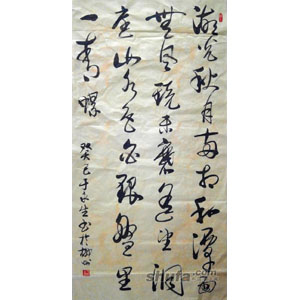 湖光秋月兩相和潭面
無風鏡未磨遥望洞
庭山水色白銀盤里
一青螺
癸巳于永生书於